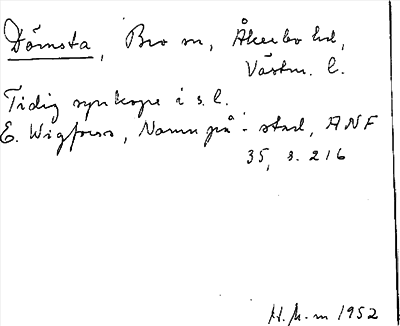 Dömsta, Bro sn, Åkerbo hd,
Västm. l.
Tidig synkope i s. l.
E. Wigforss, Namn på -stad, ANF
35, s. 216
H. M-m 1952